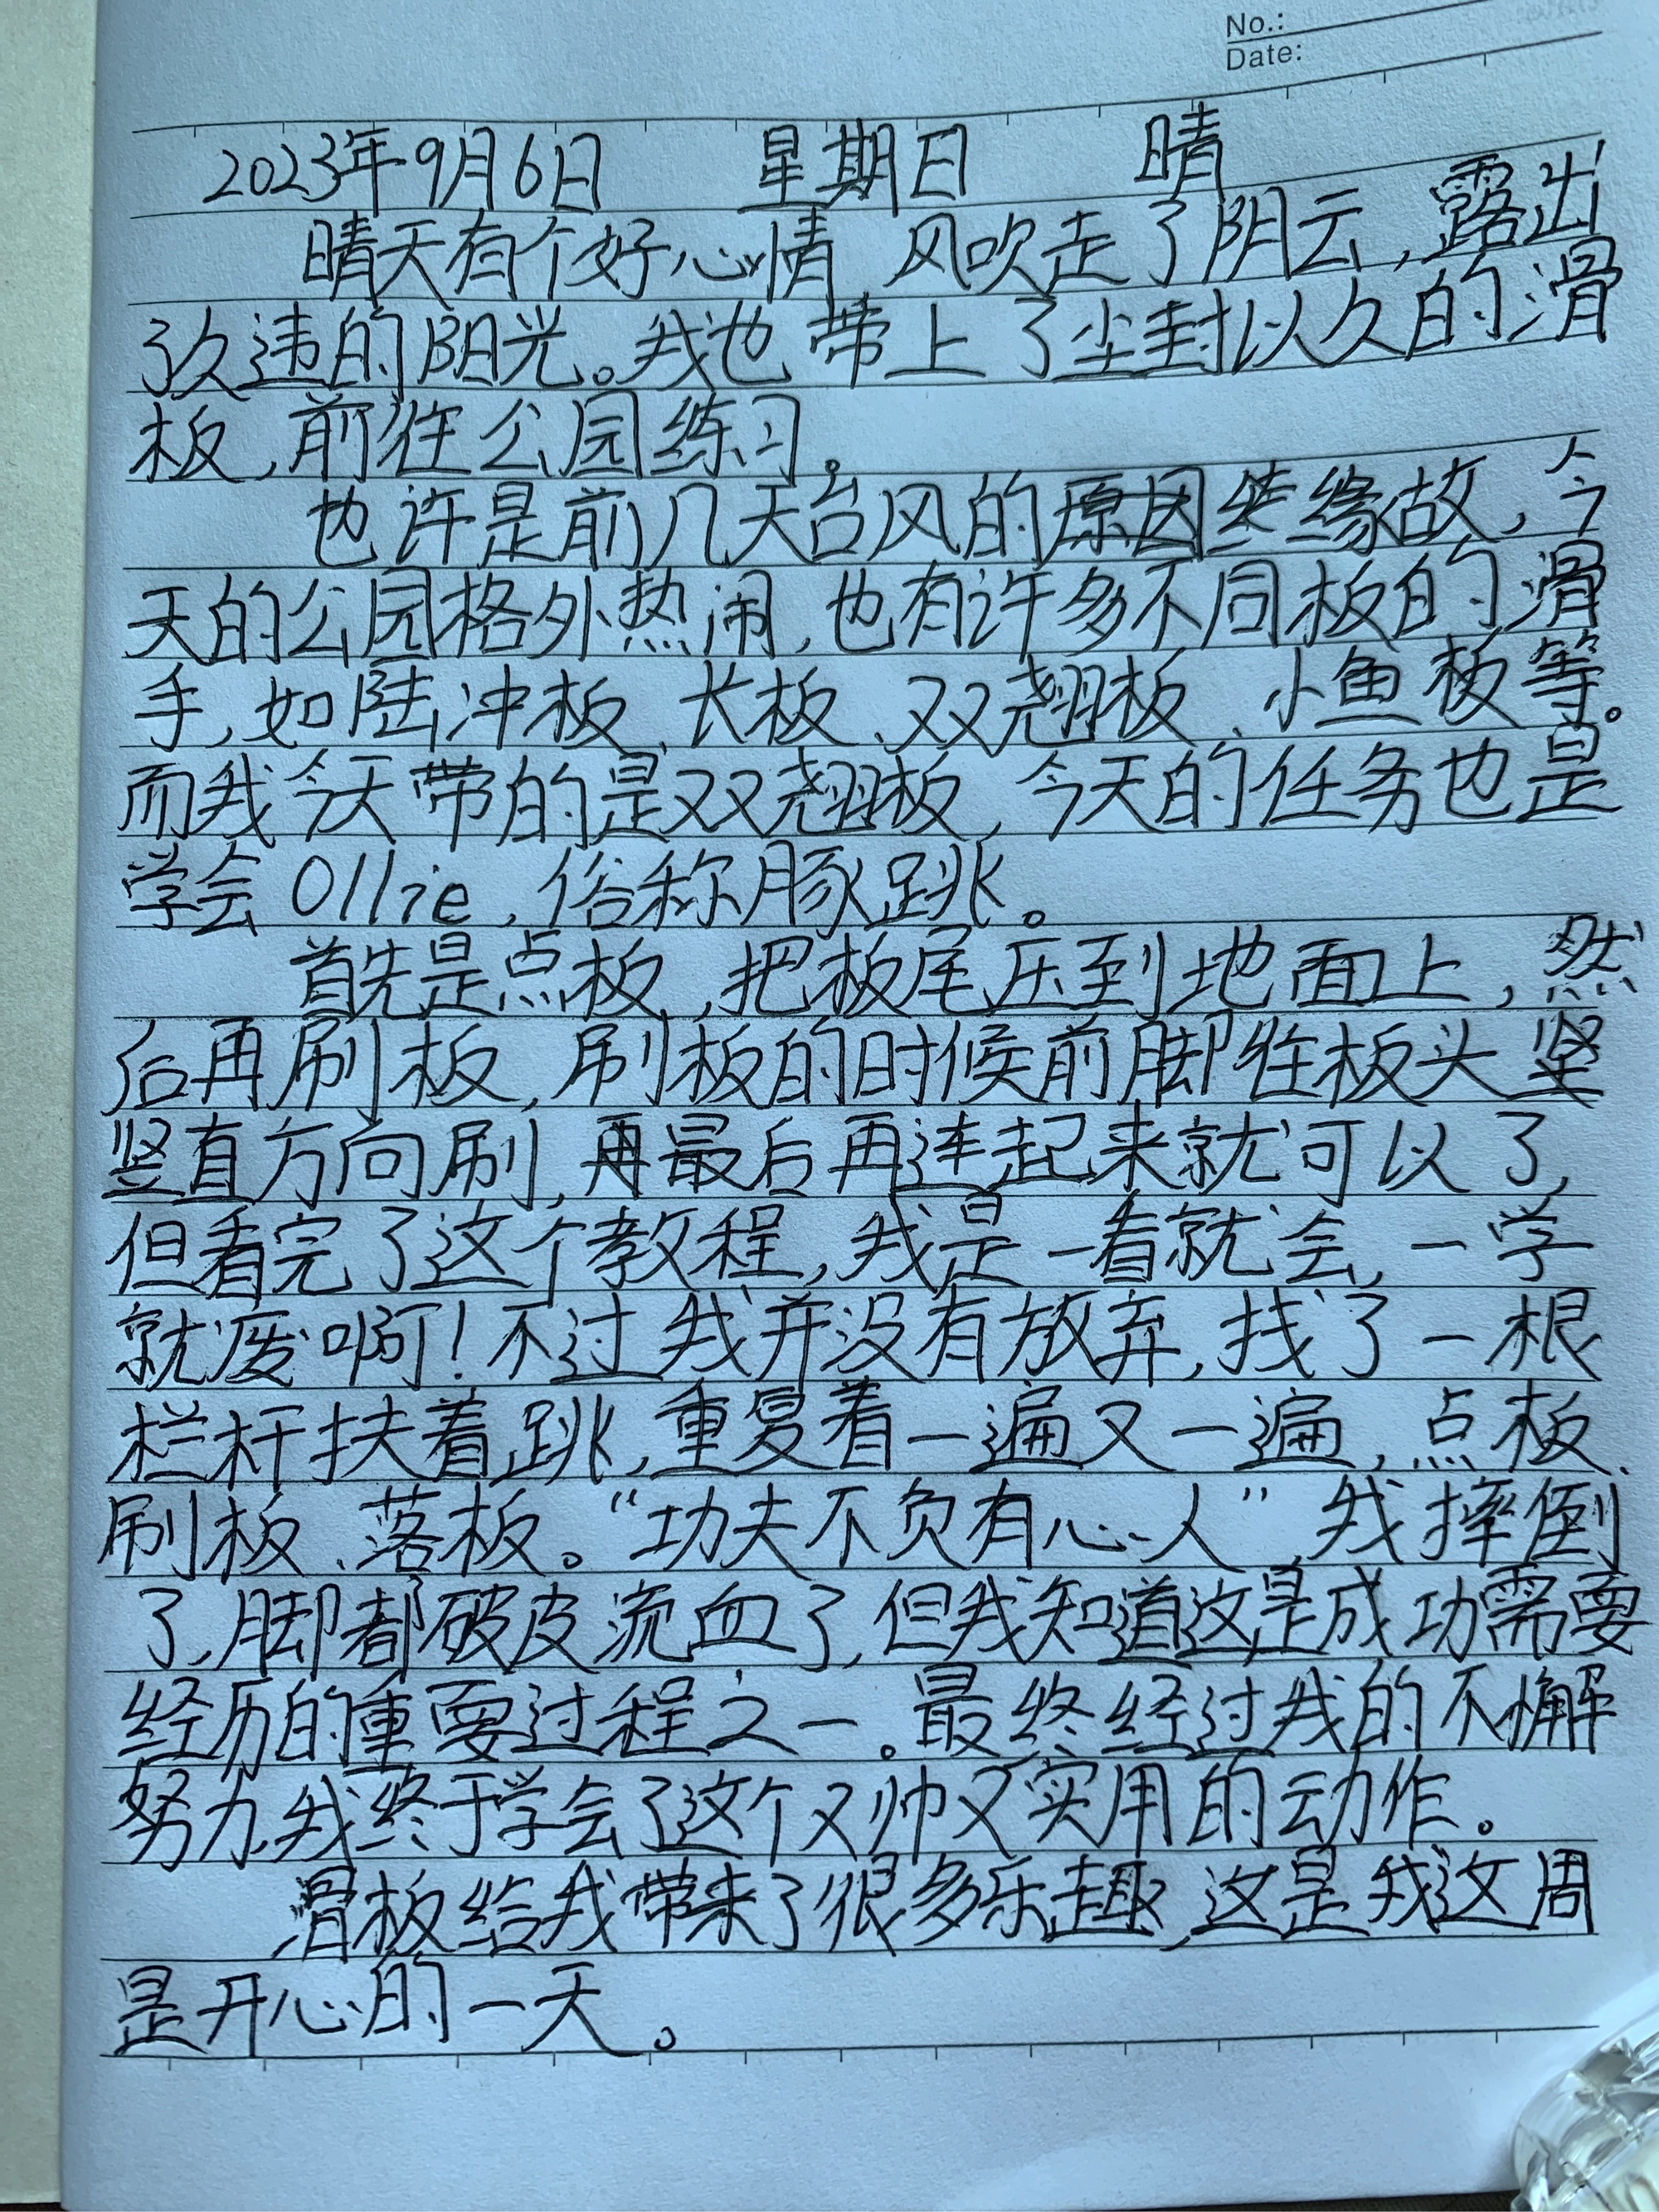 No.:
Date:
2023年9月6日 星期日 晴
晴天有个好心情 风吹走了阴云,露出
了久违的阳光。我也带上了尘封以久的滑
板,前往公园练习。
也许是前几天台风的缘故,今
天的公园格外热闹,也有许多不同板的滑
手,如陆冲板、长板、双翘板、小鱼板等。
而我今天带的是双翘板,今天的任务也是
学会Ollie,俗称豚跳。
首先是点板,把板尾压到地面上,然
后再刷板,刷板的时候前脚往板头
竖直方向刷,最后再连起来就可以了,
但看完了这个教程,我是一看就会,一学
就废啊!不过我并没有放弃,找了一根
栏杆扶着跳,重复着一遍又一遍,点板、
刷板、落板。“功夫不负有心人”我摔倒
了,脚都破皮流血了,但我知道这是成功需要
经历的重要过程之一。最终经过我的不懈
努力,我终于学会了这个又帅又实用的动作。
滑板给我带来了很多乐趣,这是我这周
是开心的一天。